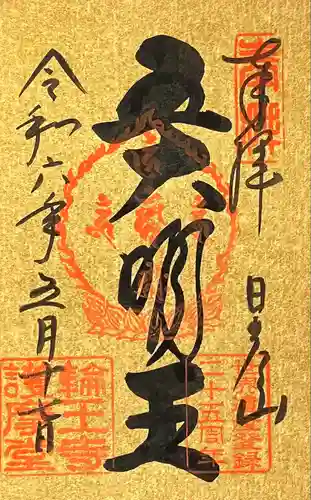 奉拝
日光山
五大明王
令和六年五月十七日
輪王寺
護摩堂